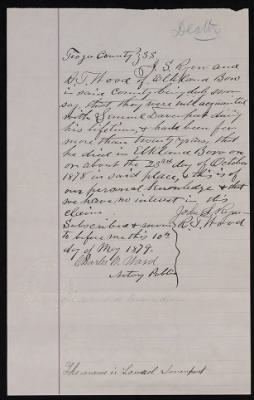 Death
Tioga County } SS
J. S. Ryon and
R. T. Wood of Elkland Boro
in said County being duly sworn
say, that they were well acquainted
with Samuel Davenport during
his lifetime, & had been for
more than twenty years, that
he died in Elkland Boro on
or about the 28th day of October
1878 in said place, & this is of
our personal knowledge & that
we have no interest in this
claim.
John S. Ryon
R. T. Wood
Subscribed & sworn
to before me this 10th
day of May 1879.
Charles Ward
Notary Public
The name is Davenport